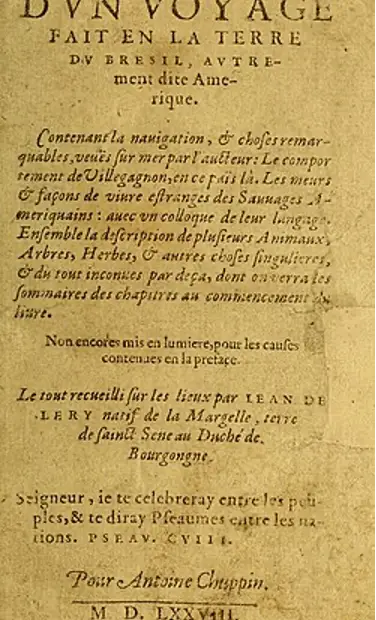 DVN VOYAGE
FAIT EN LA TERRE
DV BRESIL, AVTRE-
ment dite Ame-
rique.
Contenant la nauigation, & choſes remar-
quables, veuës ſur mer par l'aucteur: Le compor
tement de Villegagnon, en ce païs là. Les meurs
& façons de viure eſtranges des Sauuages A-
meriquains: auec vn colloque de leur langage.
Enſemble la deſcription de pluſieurs Animaux,
Arbres, Herbes, & autres choſes ſingulieres,
& du tout inconues par deça, dont on verra les
ſommaires des chapitres au commencement du
liure.
Non encores mis en lumiere, pour les cauſes
contenues en la preface.
Le tout recueilli ſur les lieux par IEAN DE
LERY natif de la Margelle, terre
de ſainct Sene au Duché de
Bourgongne.
Seigneur, ie te celebreray entre les peu-
ples, & te diray Pſeaumes entre les na-
tions. PSEAV. CVIII.
Pour Antoine Chuppin.
M D. LXXVIII.